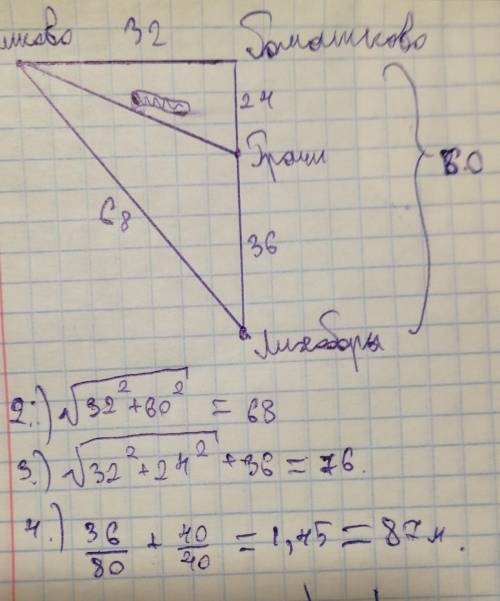 лково 32 Ромашково
24
Грачи
60
68
36
Лихоборы
2.) √32²+60² = 68
3.) √32²+24² +36 = 76.
4.) 36/80 + 40/40 = 1,45 = 87м.